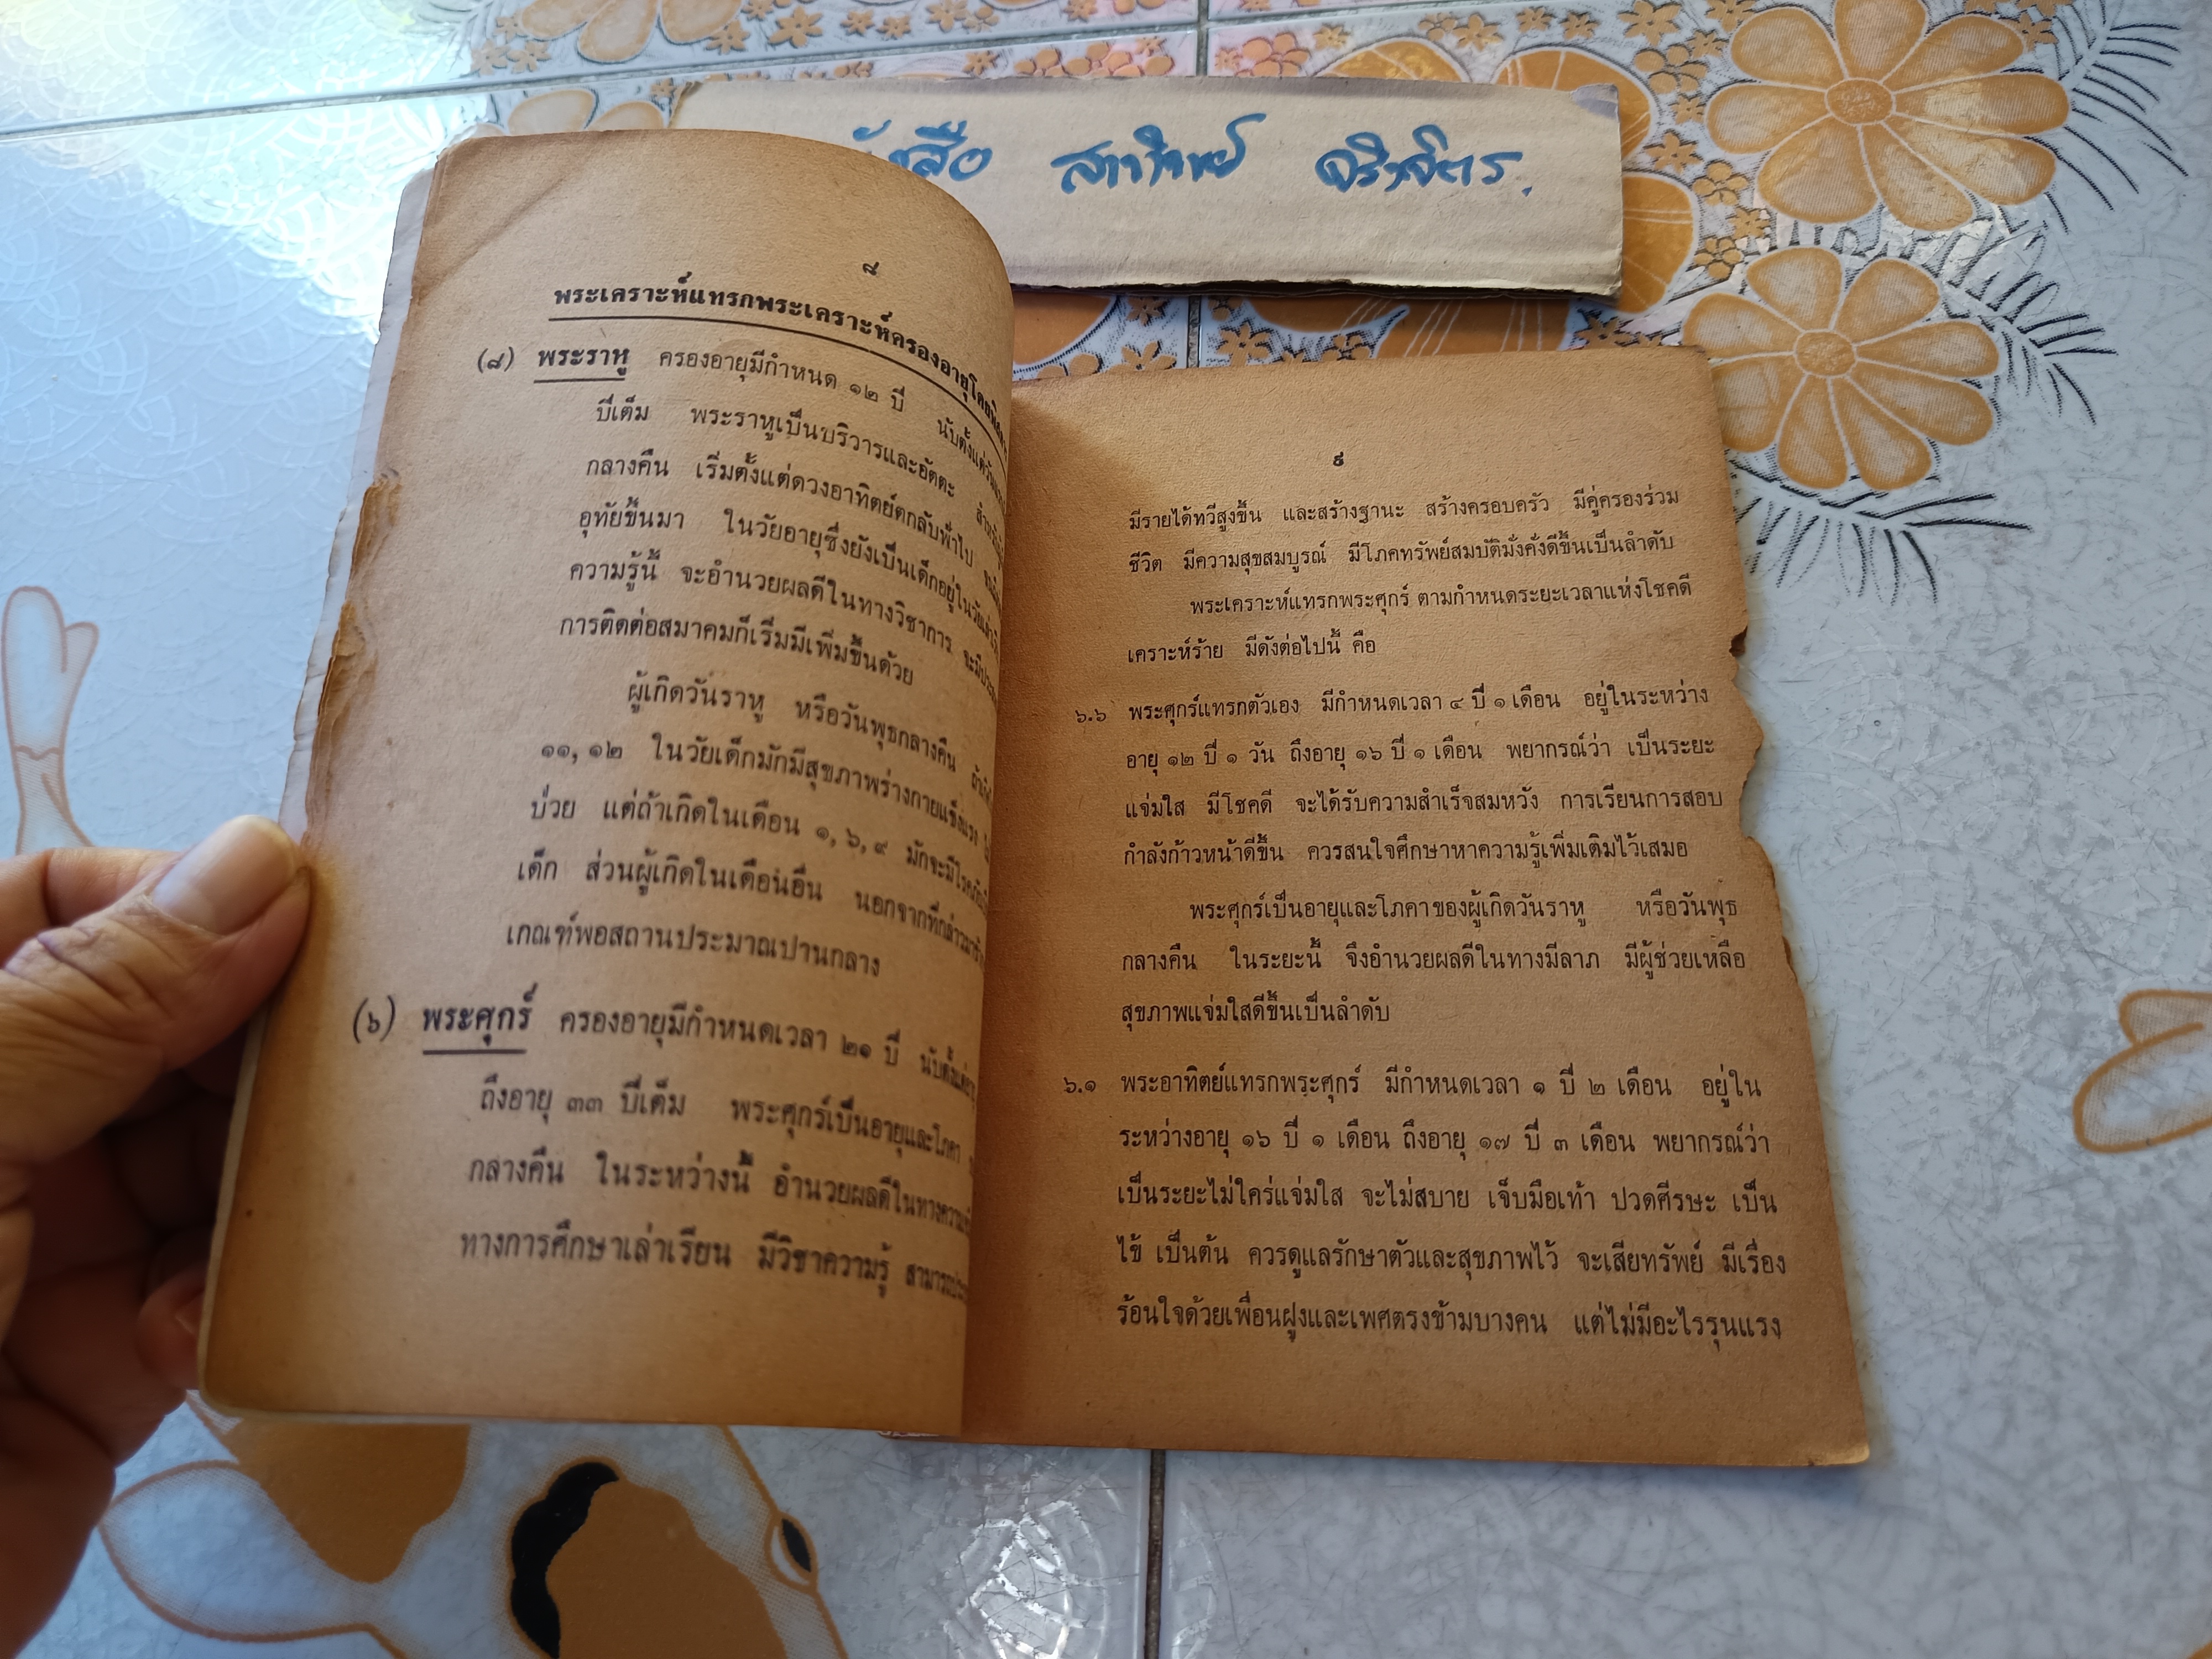 สาทิพย์
๘
พระเคราะห์แทรกพระเคราะห์ครองอายุโดย
(๘) พระราหู ครองอายุมีกำหนด ๑๒ ปี นับตั้งแต่
ปีเต็ม พระราหูเป็นบริวารและอัตตะ
กลางคืน เริ่มตั้งแต่ดวงอาทิตย์ตกลับฟ้าไป
อุทัยขึ้นมา ในวัยอายุซึ่งยังเป็นเด็กอยู่ในวัย
ความรู้นี้ จะอำนวยผลดีในทางวิชาการ
การติดต่อสมาคมก็เริ่มมีเพิ่มขึ้นด้วย
ผู้เกิดวันราหู หรือวันพุธกลางคืน
๑๑, ๑๒ ในวัยเด็กมักมีสุขภาพร่างกายแข็งแรง
ป่วย แต่ถ้าเกิดในเดือน ๑, ๖, ๙ มักจะมีโรคภัย
เด็ก ส่วนผู้เกิดในเดือนอื่น นอกจากที่กล่าวมา
เกณฑ์พอสถานประมาณปานกลาง
(๖) พระศุกร์ ครองอายุมีกำหนดเวลา ๒๑ ปี นับตั้งแต่
ถึงอายุ ๓๓ ปีเต็ม พระศุกร์เป็นอายุและโภคา
กลางคืน ในระหว่างนี้ อำนวยผลดีในทาง
ทางการศึกษาเล่าเรียน มีวิชาความรู้
๙
มีรายได้ทวีสูงขึ้น และสร้างฐานะ สร้างครอบครัว มีคู่ครองร่วม
ชีวิต มีความสุขสมบูรณ์ มีโภคทรัพย์สมบัติมั่งคั่งดีขึ้นเป็นลำดับ
พระเคราะห์แทรกพระศุกร์ ตามกำหนดระยะเวลาแห่งโชคดี
เคราะห์ร้าย มีดังต่อไปนี้ คือ
๖.๖ พระศุกร์แทรกตัวเอง มีกำหนดเวลา ๔ ปี ๑ เดือน อยู่ในระหว่าง
อายุ ๑๒ ปี ๑ วัน ถึงอายุ ๑๖ ปี ๑ เดือน พยากรณ์ว่า เป็นระยะ
แจ่มใส มีโชคดี จะได้รับความสำเร็จสมหวัง การเรียนการสอบ
กำลังก้าวหน้าดีขึ้น ควรสนใจศึกษาหาความรู้เพิ่มเติมไว้เสมอ
พระศุกร์เป็นอายุและโภคาของผู้เกิดวันราหู หรือวันพุธ
กลางคืน ในระยะนี้ จึงอำนวยผลดีในทางมีลาภ มีผู้ช่วยเหลือ
สุขภาพแจ่มใสดีขึ้นเป็นลำดับ
๖.๑ พระอาทิตย์แทรกพระศุกร์ มีกำหนดเวลา ๑ ปี ๒ เดือน อยู่ใน
ระหว่างอายุ ๑๖ ปี ๑ เดือน ถึงอายุ ๑๗ ปี ๓ เดือน พยากรณ์ว่า
เป็นระยะไม่ใคร่แจ่มใส จะไม่สบาย เจ็บมือเท้า ปวดศีรษะ เป็น
ไข้ เป็นต้น ควรดูแลรักษาตัวและสุขภาพไว้ จะเสียทรัพย์ มีเรื่อง
ร้อนใจด้วยเพื่อนฝูงและเพศตรงข้ามบางคน แต่ไม่มีอะไรรุนแรง